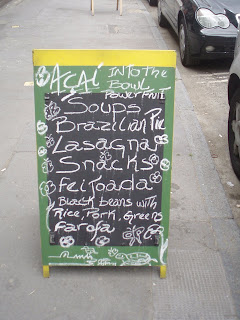 AÇAí INTO THE
BOWL
POWER FRUIT
Soups
Brazilian Pie
Lasagna
Snacks
feijoada
Black beans with
Rice, Pork, Greens
Farofa